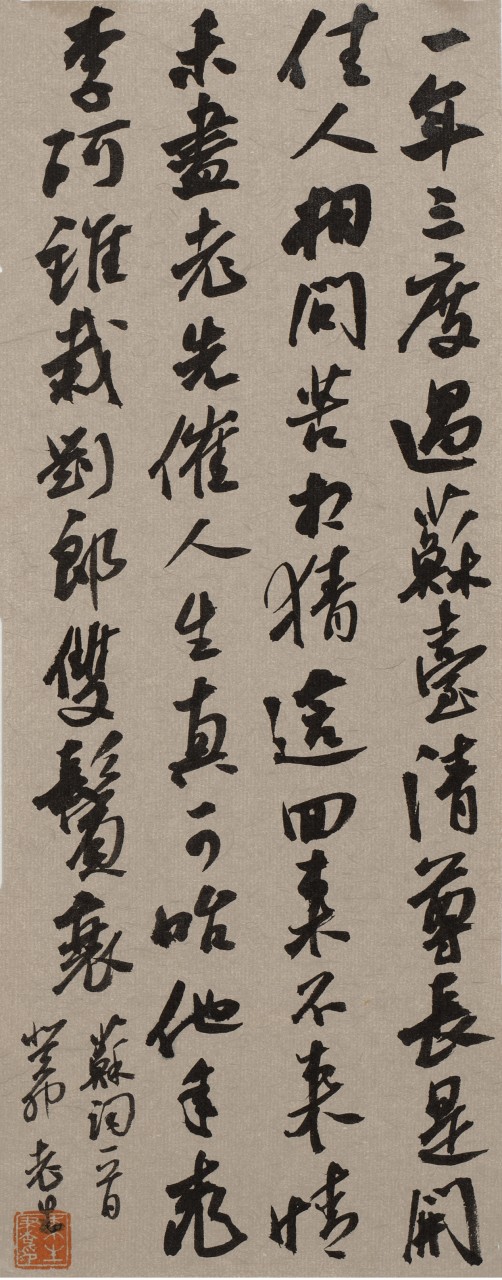 一年三度過蘇臺清尊長是開
佳人相問苦相猜這回來不來情
未盡老先催人生真可咍他年桃
李阿誰栽劉郎雙鬢衰
蘇詞一首
癸卯 老